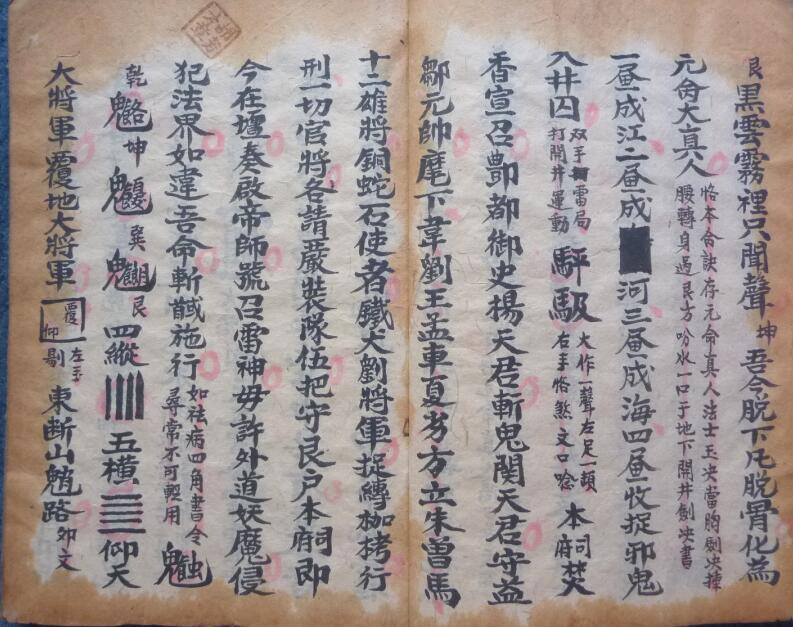 艮黑雲霧裡只聞聲坤吾今脫下凡脫骨化為
元命大真人恪本命訣存元命真人法士玉决當胸劍决掉
腰轉身過艮方吩水一口于地下開井劍决書
一畫成江二畫成河三畫成海四畫一收捉邪鬼
入井囚双手雷局打開井運動大作一聲左足一頓右手恪煞文口唸本府司焚
香宣召酆都御史楊天君斬鬼関天君守益
鄒元帥麾下韋劉王孟車夏方立朱曾馬
十二雄將銅蛇石使者鐵犬劉將軍捉縛枷栲行
刑一切官將各請嚴裝隊伍把守艮户本府祠即
今在壇奏啟帝師號召雷神毋許外道妖魔侵
犯法界如違吾命斬馘施行如祛病四角書令
尋常不可輕用
乾坤巽艮四縱五橫仰天
大將軍覆地大將軍覆仰左手剔東断山路卯文